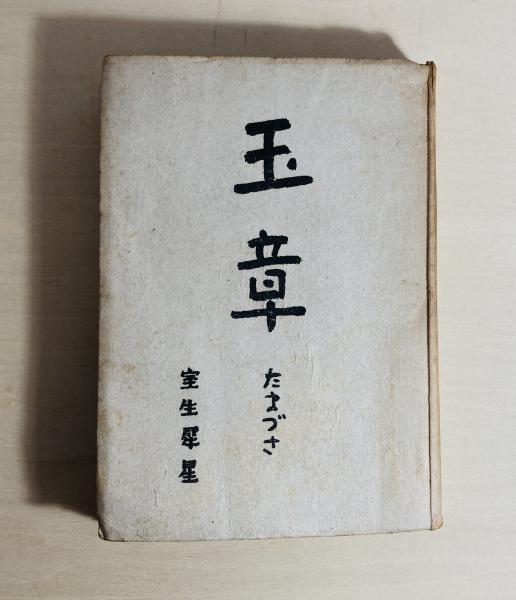 玉章
たまづさ
室生犀星